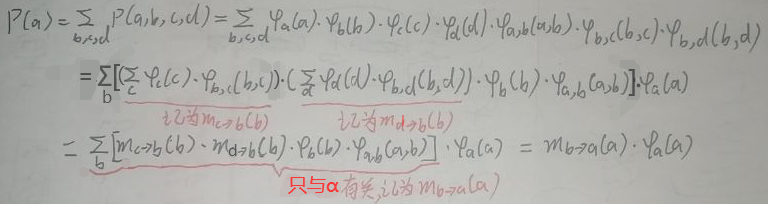 P(a) = Σ_{b,c,d} P(a,b,c,d) = Σ_{b,c,d} φa(a)·φb(b)·φc(c)·φd(d)·φa,b(a,b)·φb,c(b,c)·φb,d(b,d)
= Σ_b [(Σ_c φc(c)·φb,c(b,c))·(Σ_d φd(d)·φb,d(b,d))·φb(b)·φa,b(a,b)]·φa(a)
记为mc→b(b) 记为md→b(b)
= Σ_b [mc→b(b)·md→b(b)·φb(b)·φa,b(a,b)]·φa(a) = mb→a(a)·φa(a)
只与α有关,记为mb→a(a)